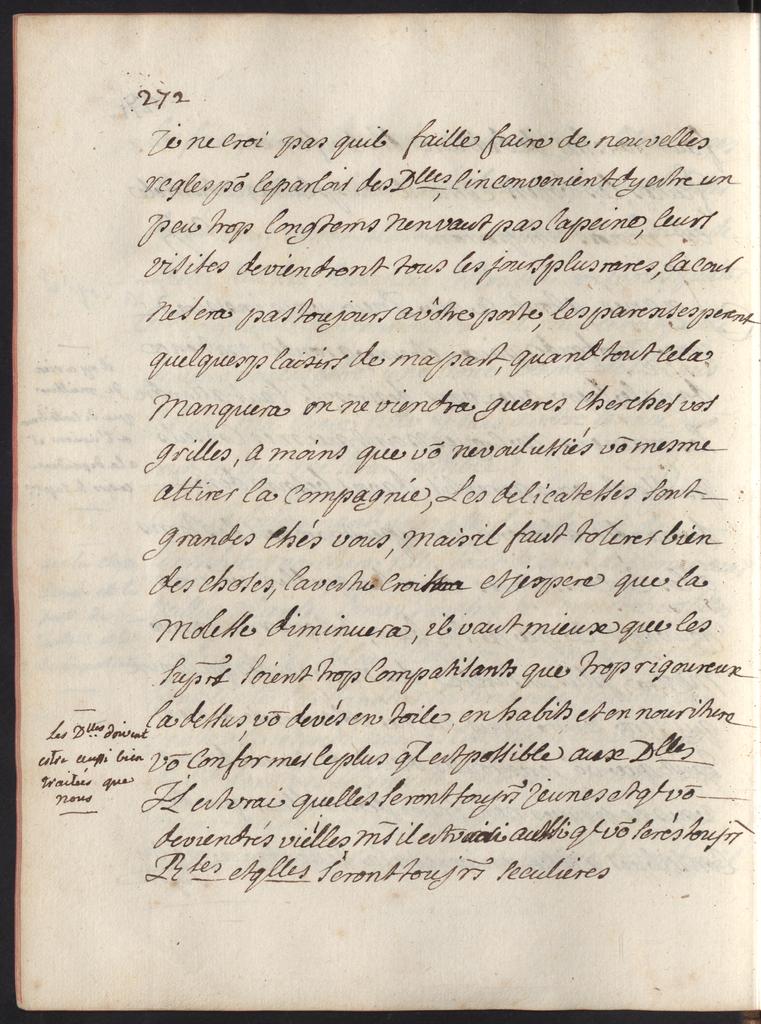 272
Je ne croi pas quil faille faire de nouvelles
regles pō le parloir des Dlles, linconvenient dy estre un
peu trop longtems nen vaut pas la peine, leurs
visites deviendront tous les jours plus rares, la cour
ne sera pas toujours a vôtre porte, les parens esperent
quelques plaisirs de ma part, quand tout cela
manquera on ne viendra gueres chercher vos
grilles, a moins que vō ne voulussiés vō mesme
attirer la compagnie, Les delicatesses sont
grandes chés vous, mais il faut tolerer bien
des choses, la vertu croitra et jespere que la
molesse diminuera, il vaut mieux que les
supres soient trop compatissants que trop rigoureux
la dessus, vō devés en toile, en habits et en nouriture
Les Dlles doivent
estre aussi bien
traitées que
nous
vō conformer le plus ql est possible aux Dlles
Il est vrai quelles seront toujrs jeunes et q vō
deviendrés viëlles ms il est vrai aussi q vō serés toujrs
Rtes et qlles seront toujrs seculieres